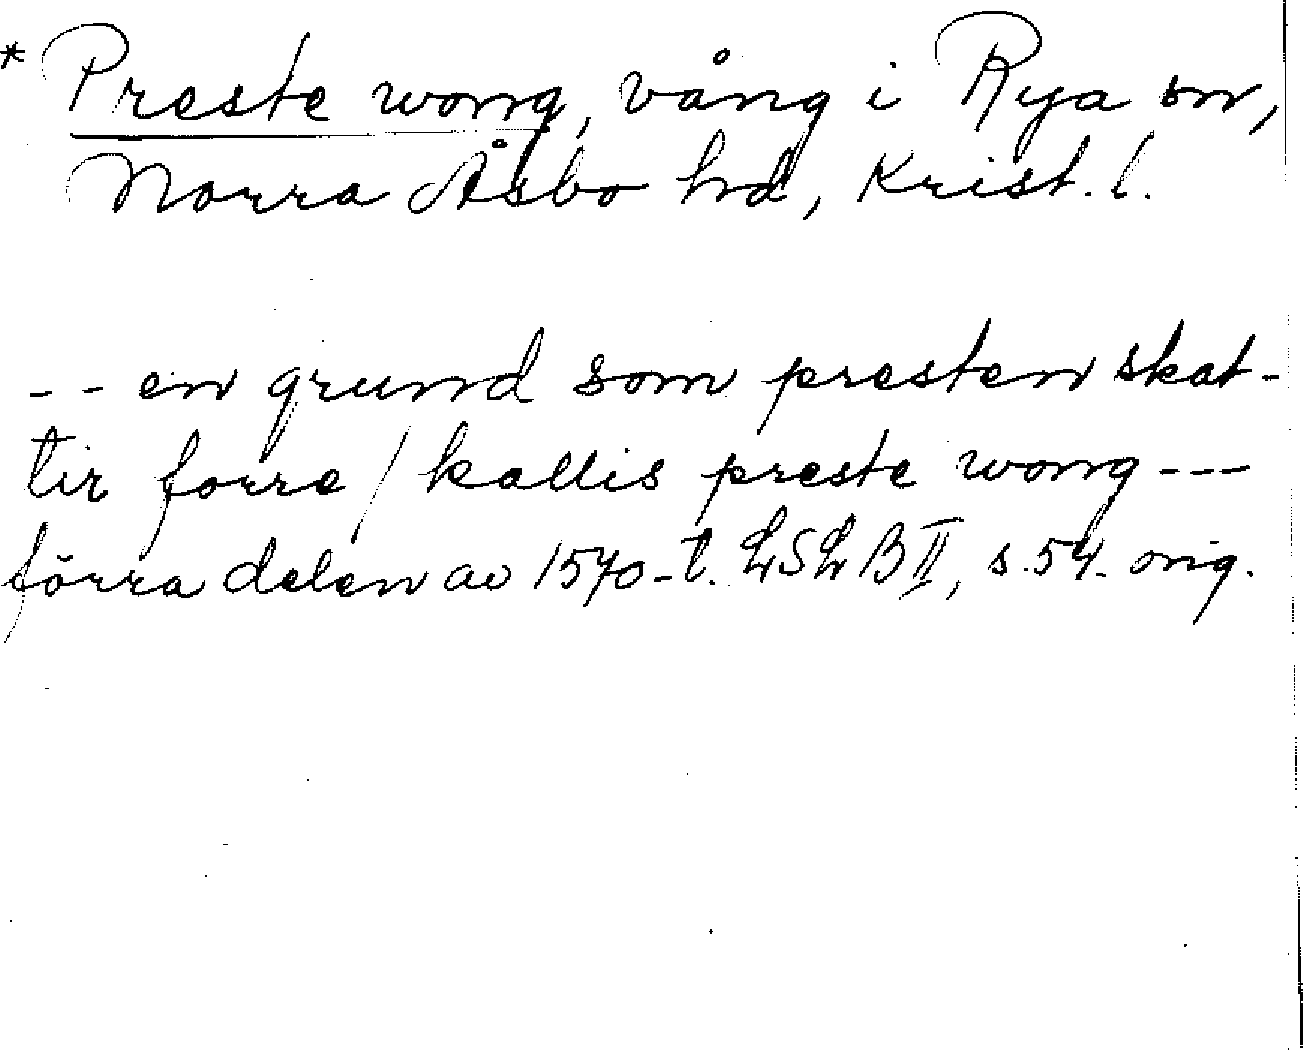 * Preste wong, vång i Rya sn,
Norra Åsbo hd, Krist. l.
-- en grund som presten skat-
tir forre / kallis preste wong ---
förra delen av 1570-t. LSLB II, s. 54. orig.